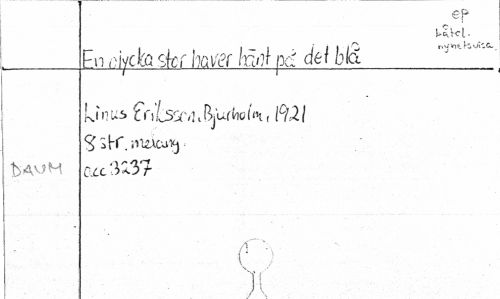 ep
Låtel.
nyhetsvisa
En olycka stor haver hänt på det blå
Linus Eriksson, Bjurholm, 1921
8 str. melanv.
DAUM
acc 3237